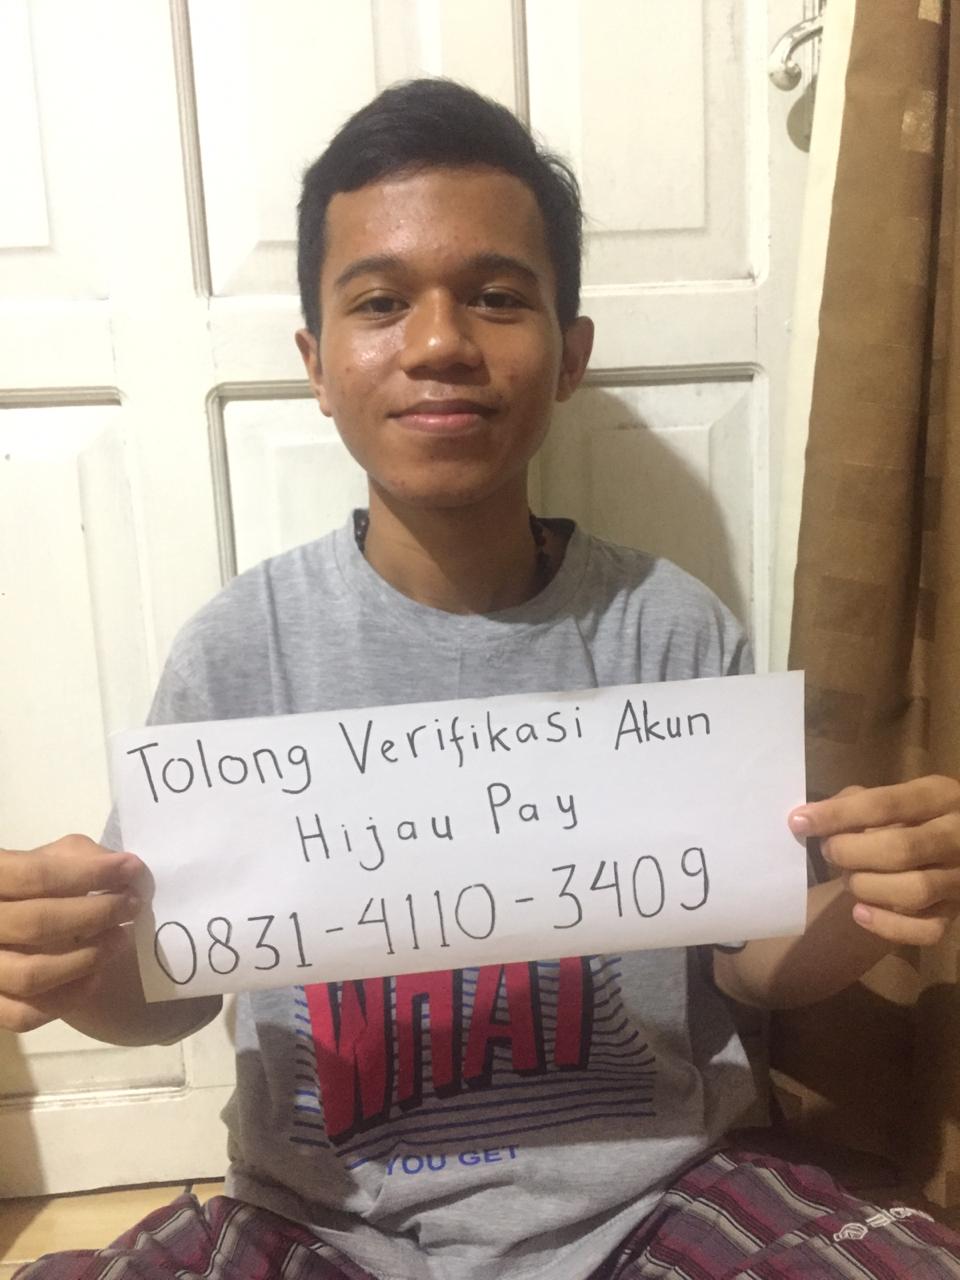 Tolong Verifikasi Akun
Hijau Pay
0831-4110-3409
WHAT
YOU GET